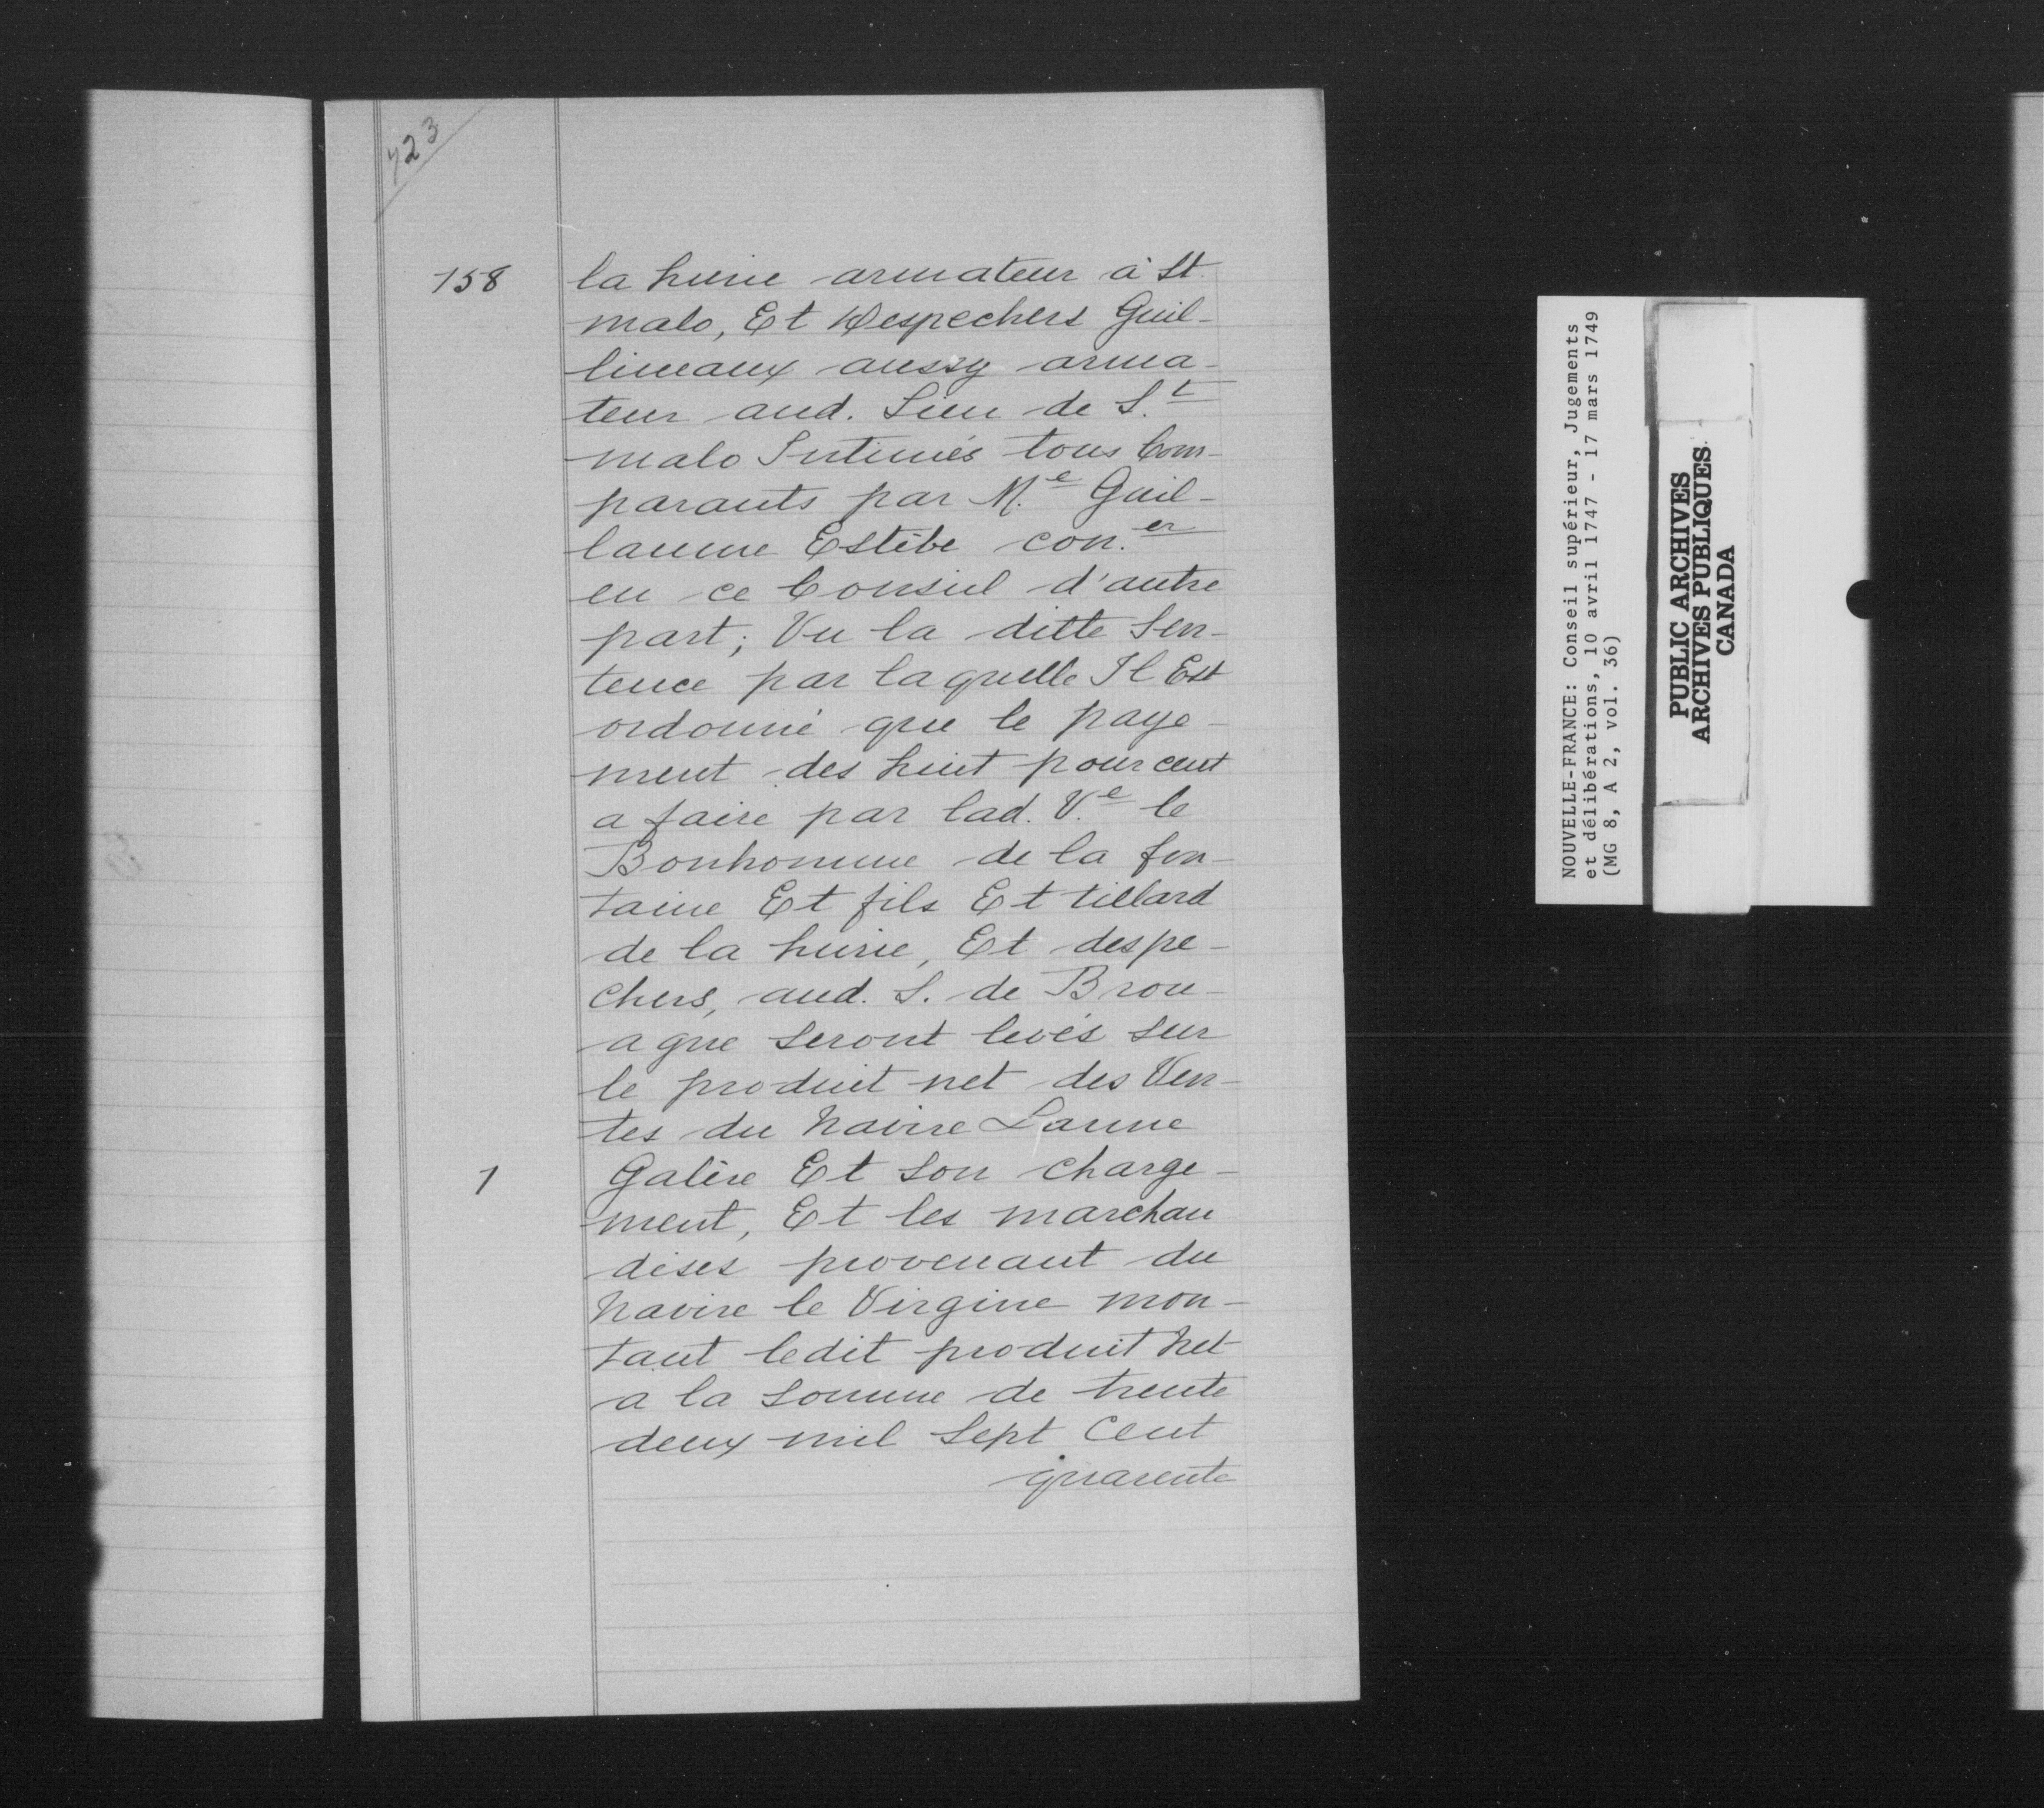 423
158
la hurie armateur à St.
malo, Et Despechers Guil-
limaux aussy arma-
teur aud. Lieu de S.t
malo Intimés tous Com-
parants par M.e Guil-
laume Estèbe con.er
en ce Conseil d'autre
part; Vu la ditte Sen-
tence par laquelle Il Est
ordonné que le paye-
ment des huit pour cent
a faire par lad. V.e le
Bonhomme de la fon-
taine Et fils Et tillard
de la hurie, Et despe-
chers, aud. S. de Brou-
ague seront levés sur
le produit net des Ven-
tes du Navire Lanne
1
Galère Et son charge-
ment, Et les marchan
dises provenant du
Navire le Virgine mon-
tant ledit produit Net
a la somme de trente
deux mil Sept Cent
quarente
NOUVELLE-FRANCE: Conseil supérieur, Jugements
et délibérations, 10 avril 1747 - 17 mars 1749
(MG 8, A 2, vol. 36)
PUBLIC ARCHIVES
ARCHIVES PUBLIQUES
CANADA